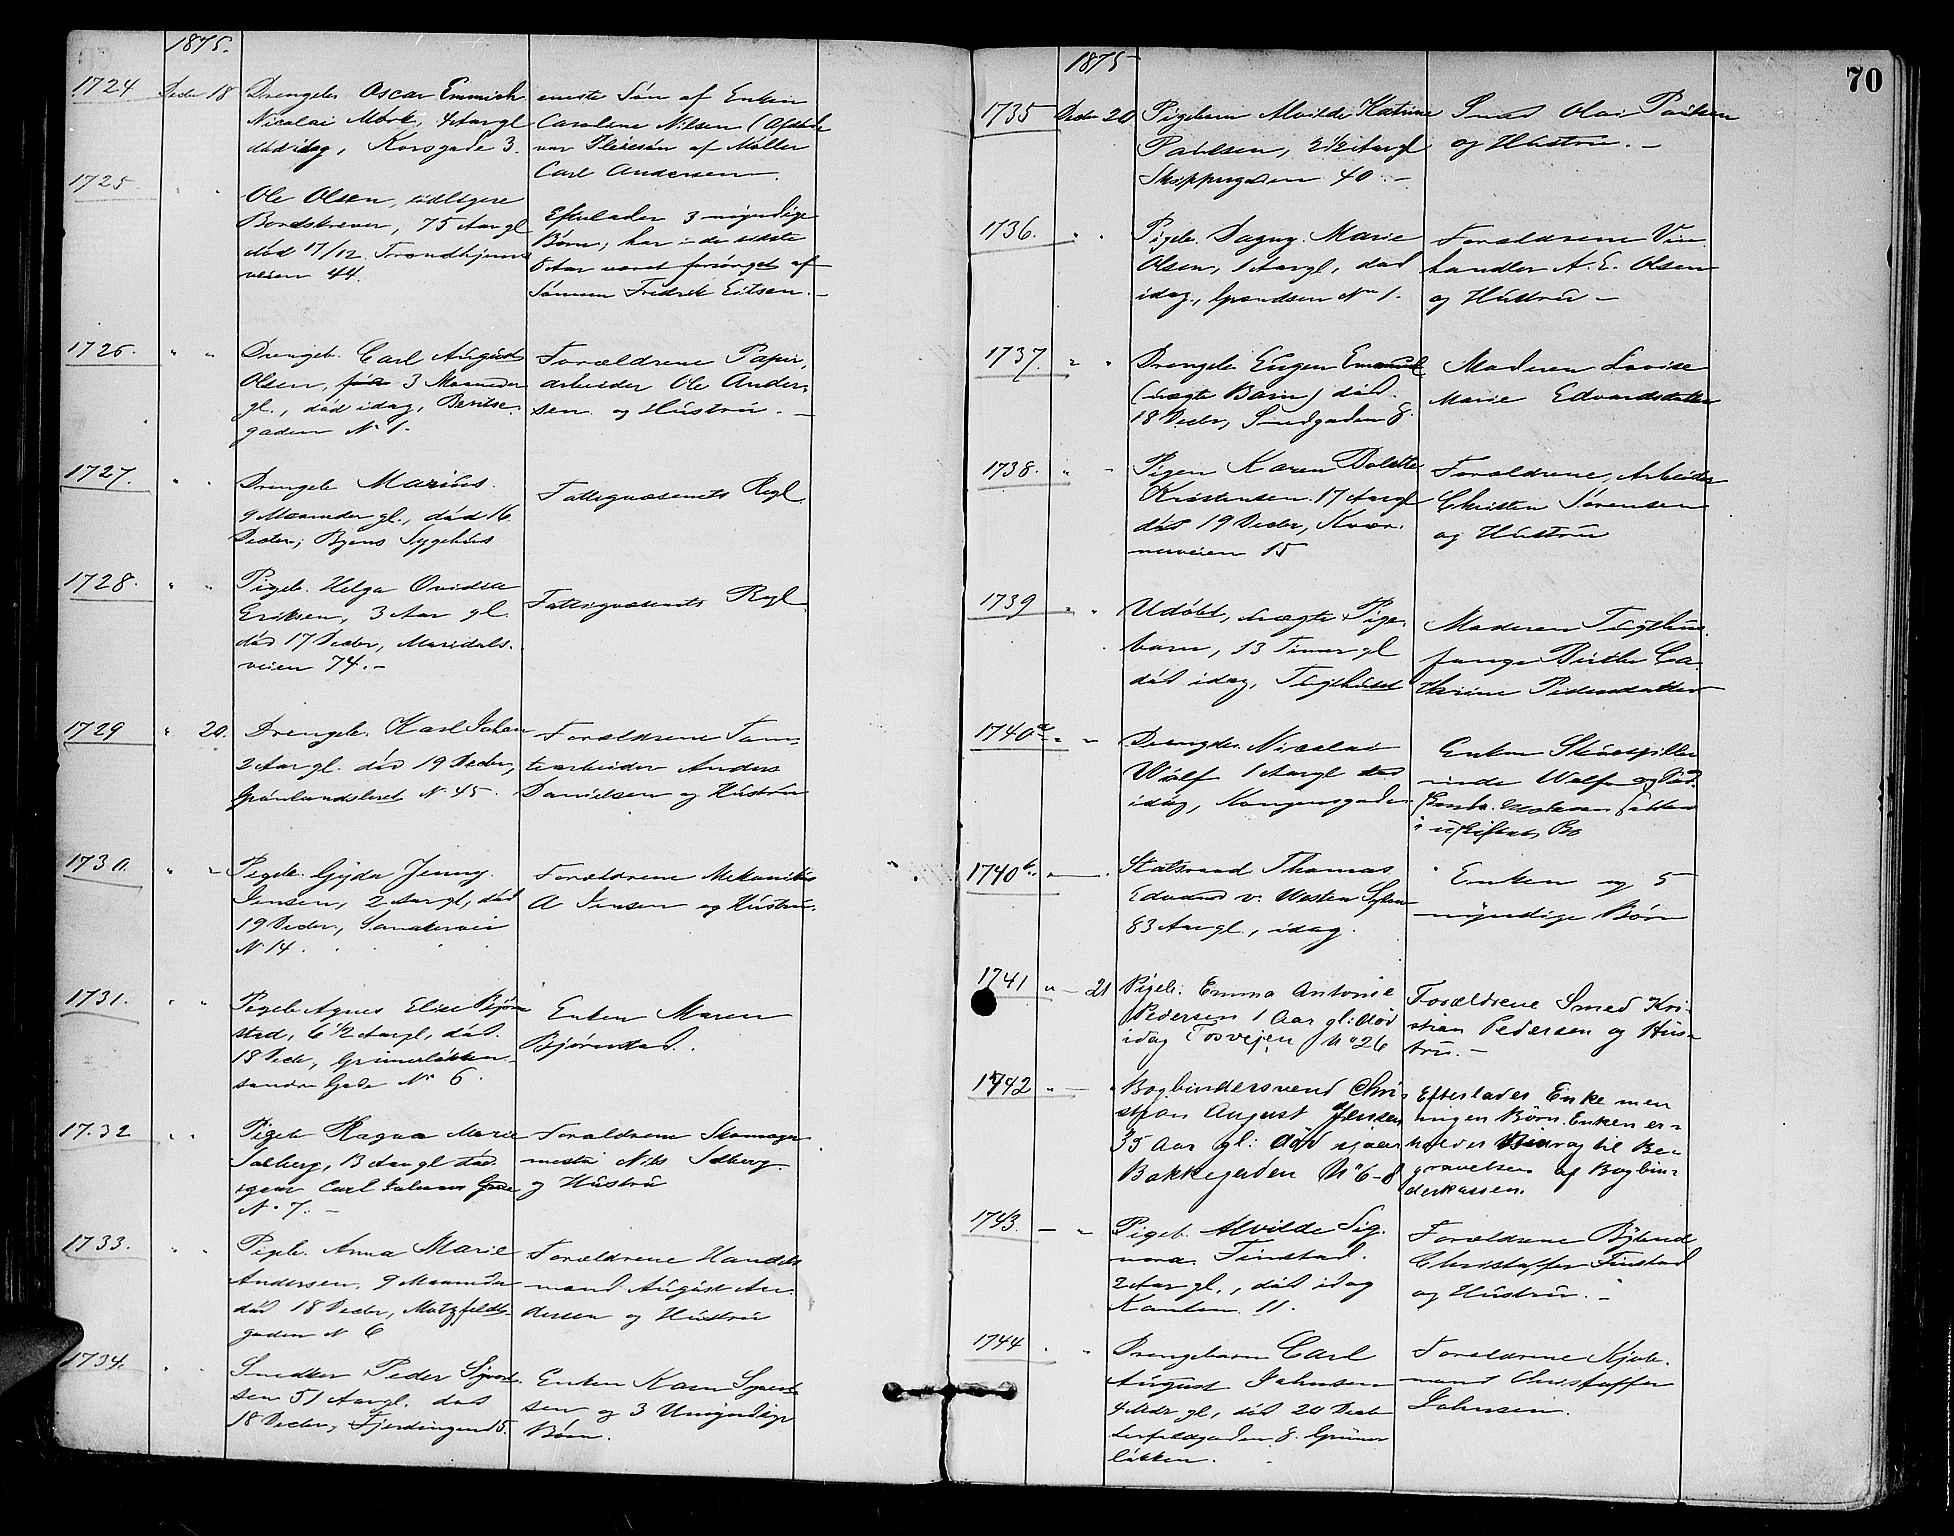 1875.
1724 Decbr 18 Drengeb. Oscar Emmich
Nicolai Mörk, 4 Aar gl
död idag, Korsgade 3.
eneste Sön af Enken
Caroline Nilsen (Afdöde
var Pleiesön af Möller
Carl Andersen.
1725. " " Ole Olsen, tidligere
Bordskriver, 75 Aar gl
död 17/12 Trondhjems
veien 44.
Efterlader 3 myndige
Börn, har i de sidste
8 Aar været forsörget af
Sönnen Fredrik Eilsen.-
1726. " " Drengeb. Carl August
Olsen, 3 Maaneder
gl., död idag, Beritse.
gaden No 1.
Forældrene Papir,
arbeider Ole Ander,
sen og Hustru. -
1727. " " Drengeb Marius
9 Maaneder gl., död 16
Decbr, Byens Sygehus
Fattigvæsenets Regl
1728. " " Pigeb. Helga Ovidia
Eriksen, 3 Aar gl
död 17 Decbr, Maridals.
veien 74.-
Fattigvæsenets Regl
1729 " 20. Drengeb. Karl Johan
2 Aar gl. död 19 Decbr,
Grönlandsleret N. 45.
Forældrene Tom-
tearbeider Anders
Danielsen og Hustru
1730. " " Pigeb. Gyda Jenny
Jensen, 2 Aar gl, död
19 Decbr, Sandakerveien
No 14.
Forældrene Mekanikus
A Jensen og Hustru.
1731. " " Pigeb Agnes Elise Björn
stad, 6 1/2 Aar gl, död.
18 Decbr, Grünerlökken
söndre Gade No 6.
Enken Maren
Björnstad.
1732 " " Pigeb Ragna Marie
Solberg, 13 Aar gl död
igaar Carl Johans Gade
No 7. -
Forældrene Skomager
mester Nils Solberg
og Hustru
1733. " " Pigeb. Anna Marie
Andersen, 9 Maaneder
död 18 Decbr, Motzfeldts
gaden N 6
Forældrene Handels
mand August An-
dersen og Hustru
1734. " " Snedker Peder Syvert
sen 51 Aar gl. död
18 Decbr, Fjerdingend 15.
Enken Karen Syvert
sen og 3 Umyndige
Börn.
70
1875
1735 Decbr 20 Pigebarn Alvilde Katrine
Paulsen, 2 1/2 Aar gl
Skippergaden 40.-
Smed Olai Paulsen
og Hustru. -
1736. " " Pigeb. Dagny Marie
Olsen, 1 Aar gl, död
idag, Grændsen No 1.
Forældrene Vin
handler A. E. Olsen
og Hustru -
1737. " " Drengeb Eugen Emanuel
(uægte Barn) död.
18 Decbr, Smedgaden 8.
Moderen Lovise
Marie Edvardsdatter
1738. " - Pigen Karen Dolette
Kristensen 17 Aar gl
död 19 Decbr, Kvær.
nerveien 15
Forældrene, Arbeider
Christen Sörensen
og Hustru
1739 " " Udöbt, uægte Pige.
barn, 13 Timer gl
död idag, Tugthuset
Moderen Tugthus.
fange Birthe Ca
thrine Pedersdatter
1740a " " Drengeb. Nicolai
Wolf 1 Aar gl död
idag, Kongensgade
Enken Skuespiller
inde Wolf og
i uskiftet Bo
1740b " - Statsraad Thomas
Edvard v. Westen Sylow
83 Aar gl., idag.
Enken og 5
myndige Börn
1741 " - 21 Pigeb: Emma Antonie
Pedersen 1 Aar gl: död
idag Fosvejen No 26
Forældrene Smed Kri-
stian Pedersen og Hus-
tru. -
1742 " - " Bogbindersvend Chri-
stian August Jensen
35 Aar gl: död igaar
Bakkegaden No 6-8
Efterlader Enke men
ingen Börn. Enken er-
holder Bidrag til Be-
gravelsen af Bogbin-
derkassen.
1743. - " Pigeb. Alvilde Sig
nora Finstad.
2 Aar gl., död idag
Kanten 11.
Forældrene Bybud
Christoffer Finstad
og Hustru. -
1744 " " Drengebarn Carl
August Johnsen
4 Mdr gl, död 20 Decbr
gaden 8. Grüner
lökken.
Forældrene Kjöb-
mand Christoffer
Johnsen.